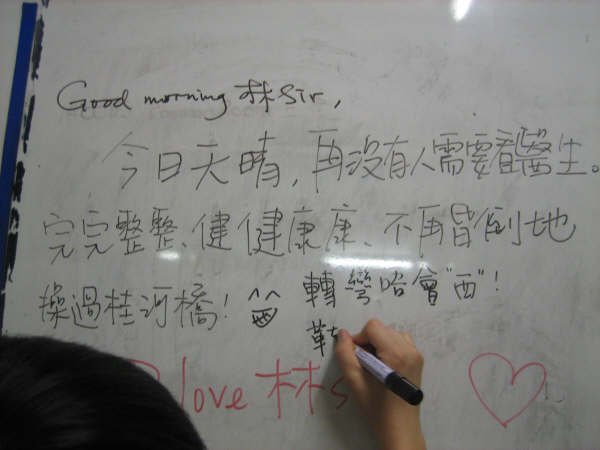 Good morning 林Sir,
今日天晴，再沒有人需要看醫生。
完完整整、健健康康、不再昏倒地
操過桂河橋！ 轉彎唔會"西"！
love 林s